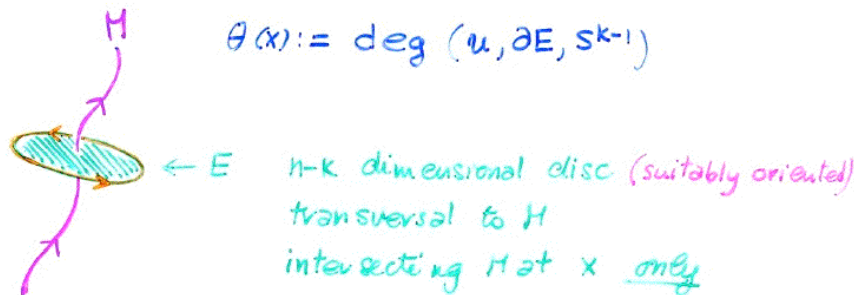 M
θ(x) := deg (u, ∂E, S^{k-1})
← E n-k dimensional disc (suitably oriented)
transversal to M
intersecting M at x only